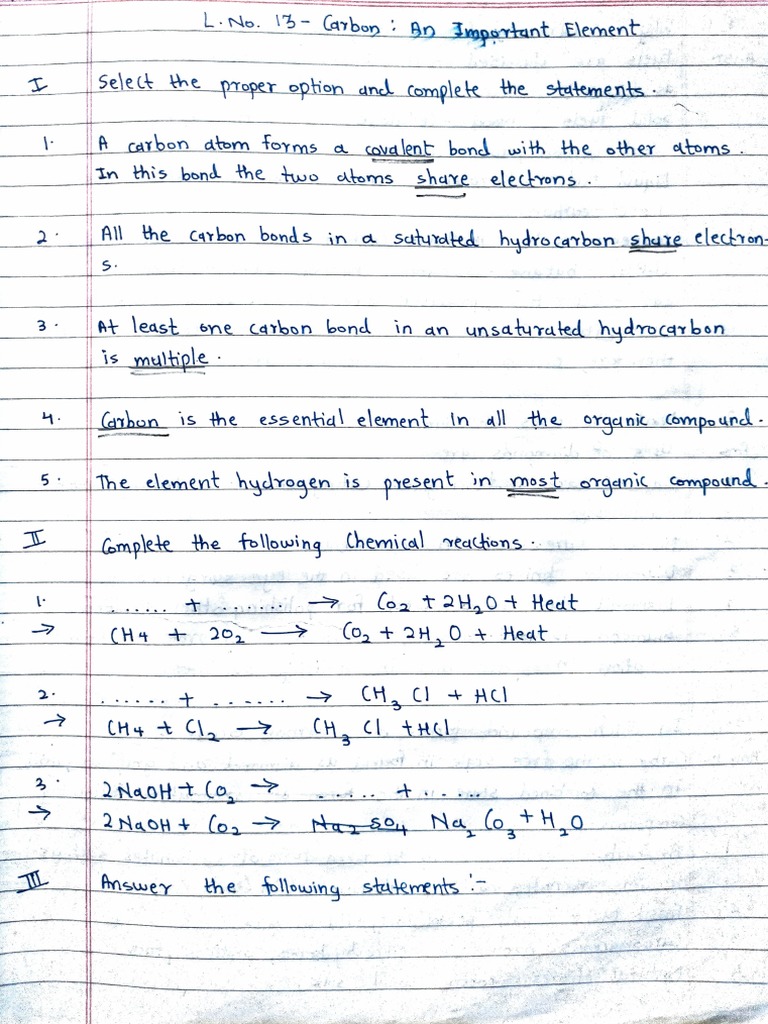 L. No. 13 - Carbon : An Important Element
I Select the proper option and complete the statements.
1. A carbon atom forms a covalent bond with the other atoms.
In this bond the two atoms share electrons.
2. All the carbon bonds in a saturated hydrocarbon share electron-
s.
3. At least one carbon bond in an unsaturated hydrocarbon
is multiple.
4. Carbon is the essential element in all the organic compound.
5. The element hydrogen is present in most organic compound.
II Complete the following Chemical reactions.
1. ...... + ....... → CO2 + 2H2O + Heat
→ CH4 + 2O2 → CO2 + 2H2O + Heat
2. ...... + ....... → CH3 Cl + HCl
→ CH4 + Cl2 → CH3 Cl + HCl
3. 2NaOH + CO2 → ...... + ......
→ 2NaOH + CO2 → Na2 SO4 Na2 CO3 + H2O
III Answer the following statements :-